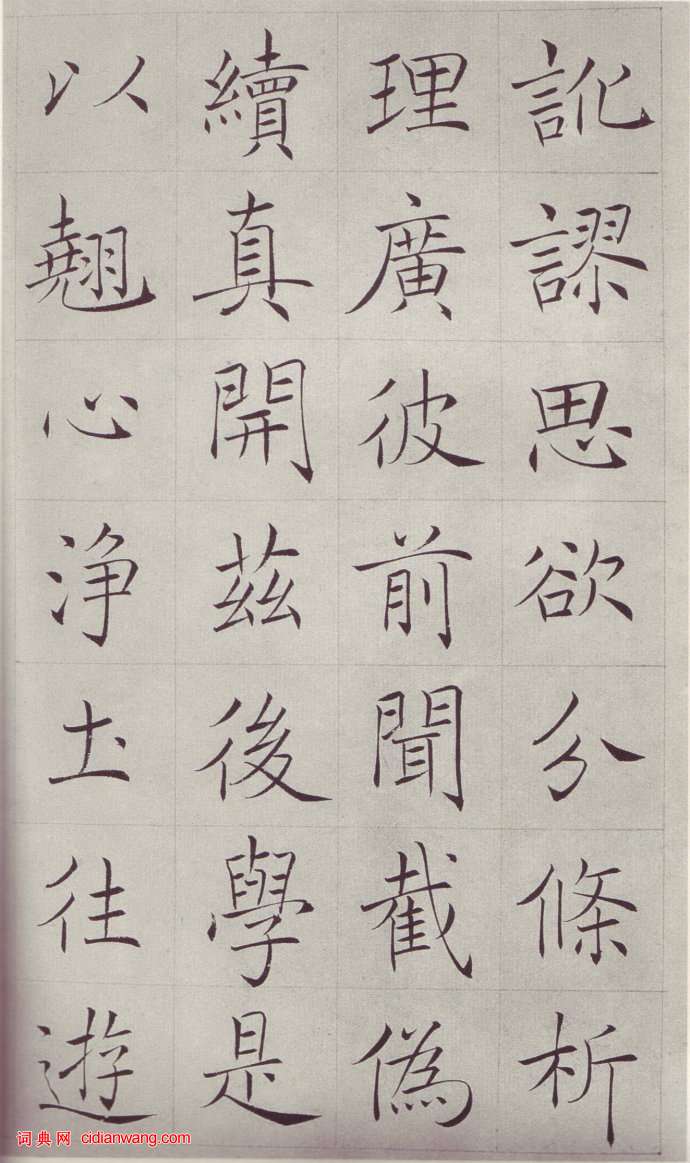 訛謬思欲分條析
理廣彼前聞截偽
續真開茲後學是
以翹心淨土往遊
词典网 cidianwang.com